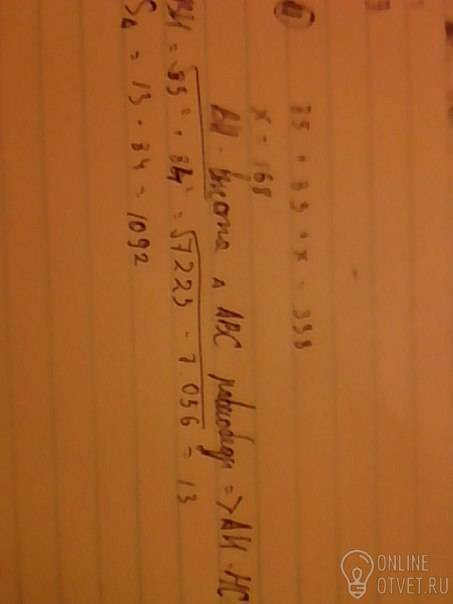 85 + 85 + x = 338
x = 168
BH - высота Δ ABC равнобедр => AH = HC
BH = √85² - 84² = √7225 - 7056 = 13
S = 13 · 84 = 1092
ONLINE
OTVET.RU